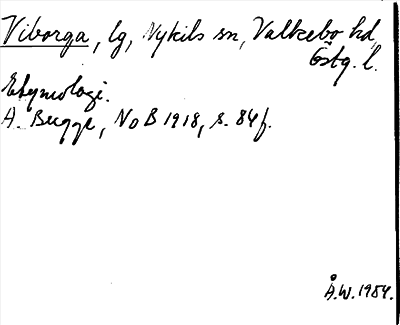 Viborga, lg, Nykils sn, Valkebo hd,
Östg. l.
Etymologi.
A. Bugge, NoB 1918, s. 84f.
Å.W. 1954.